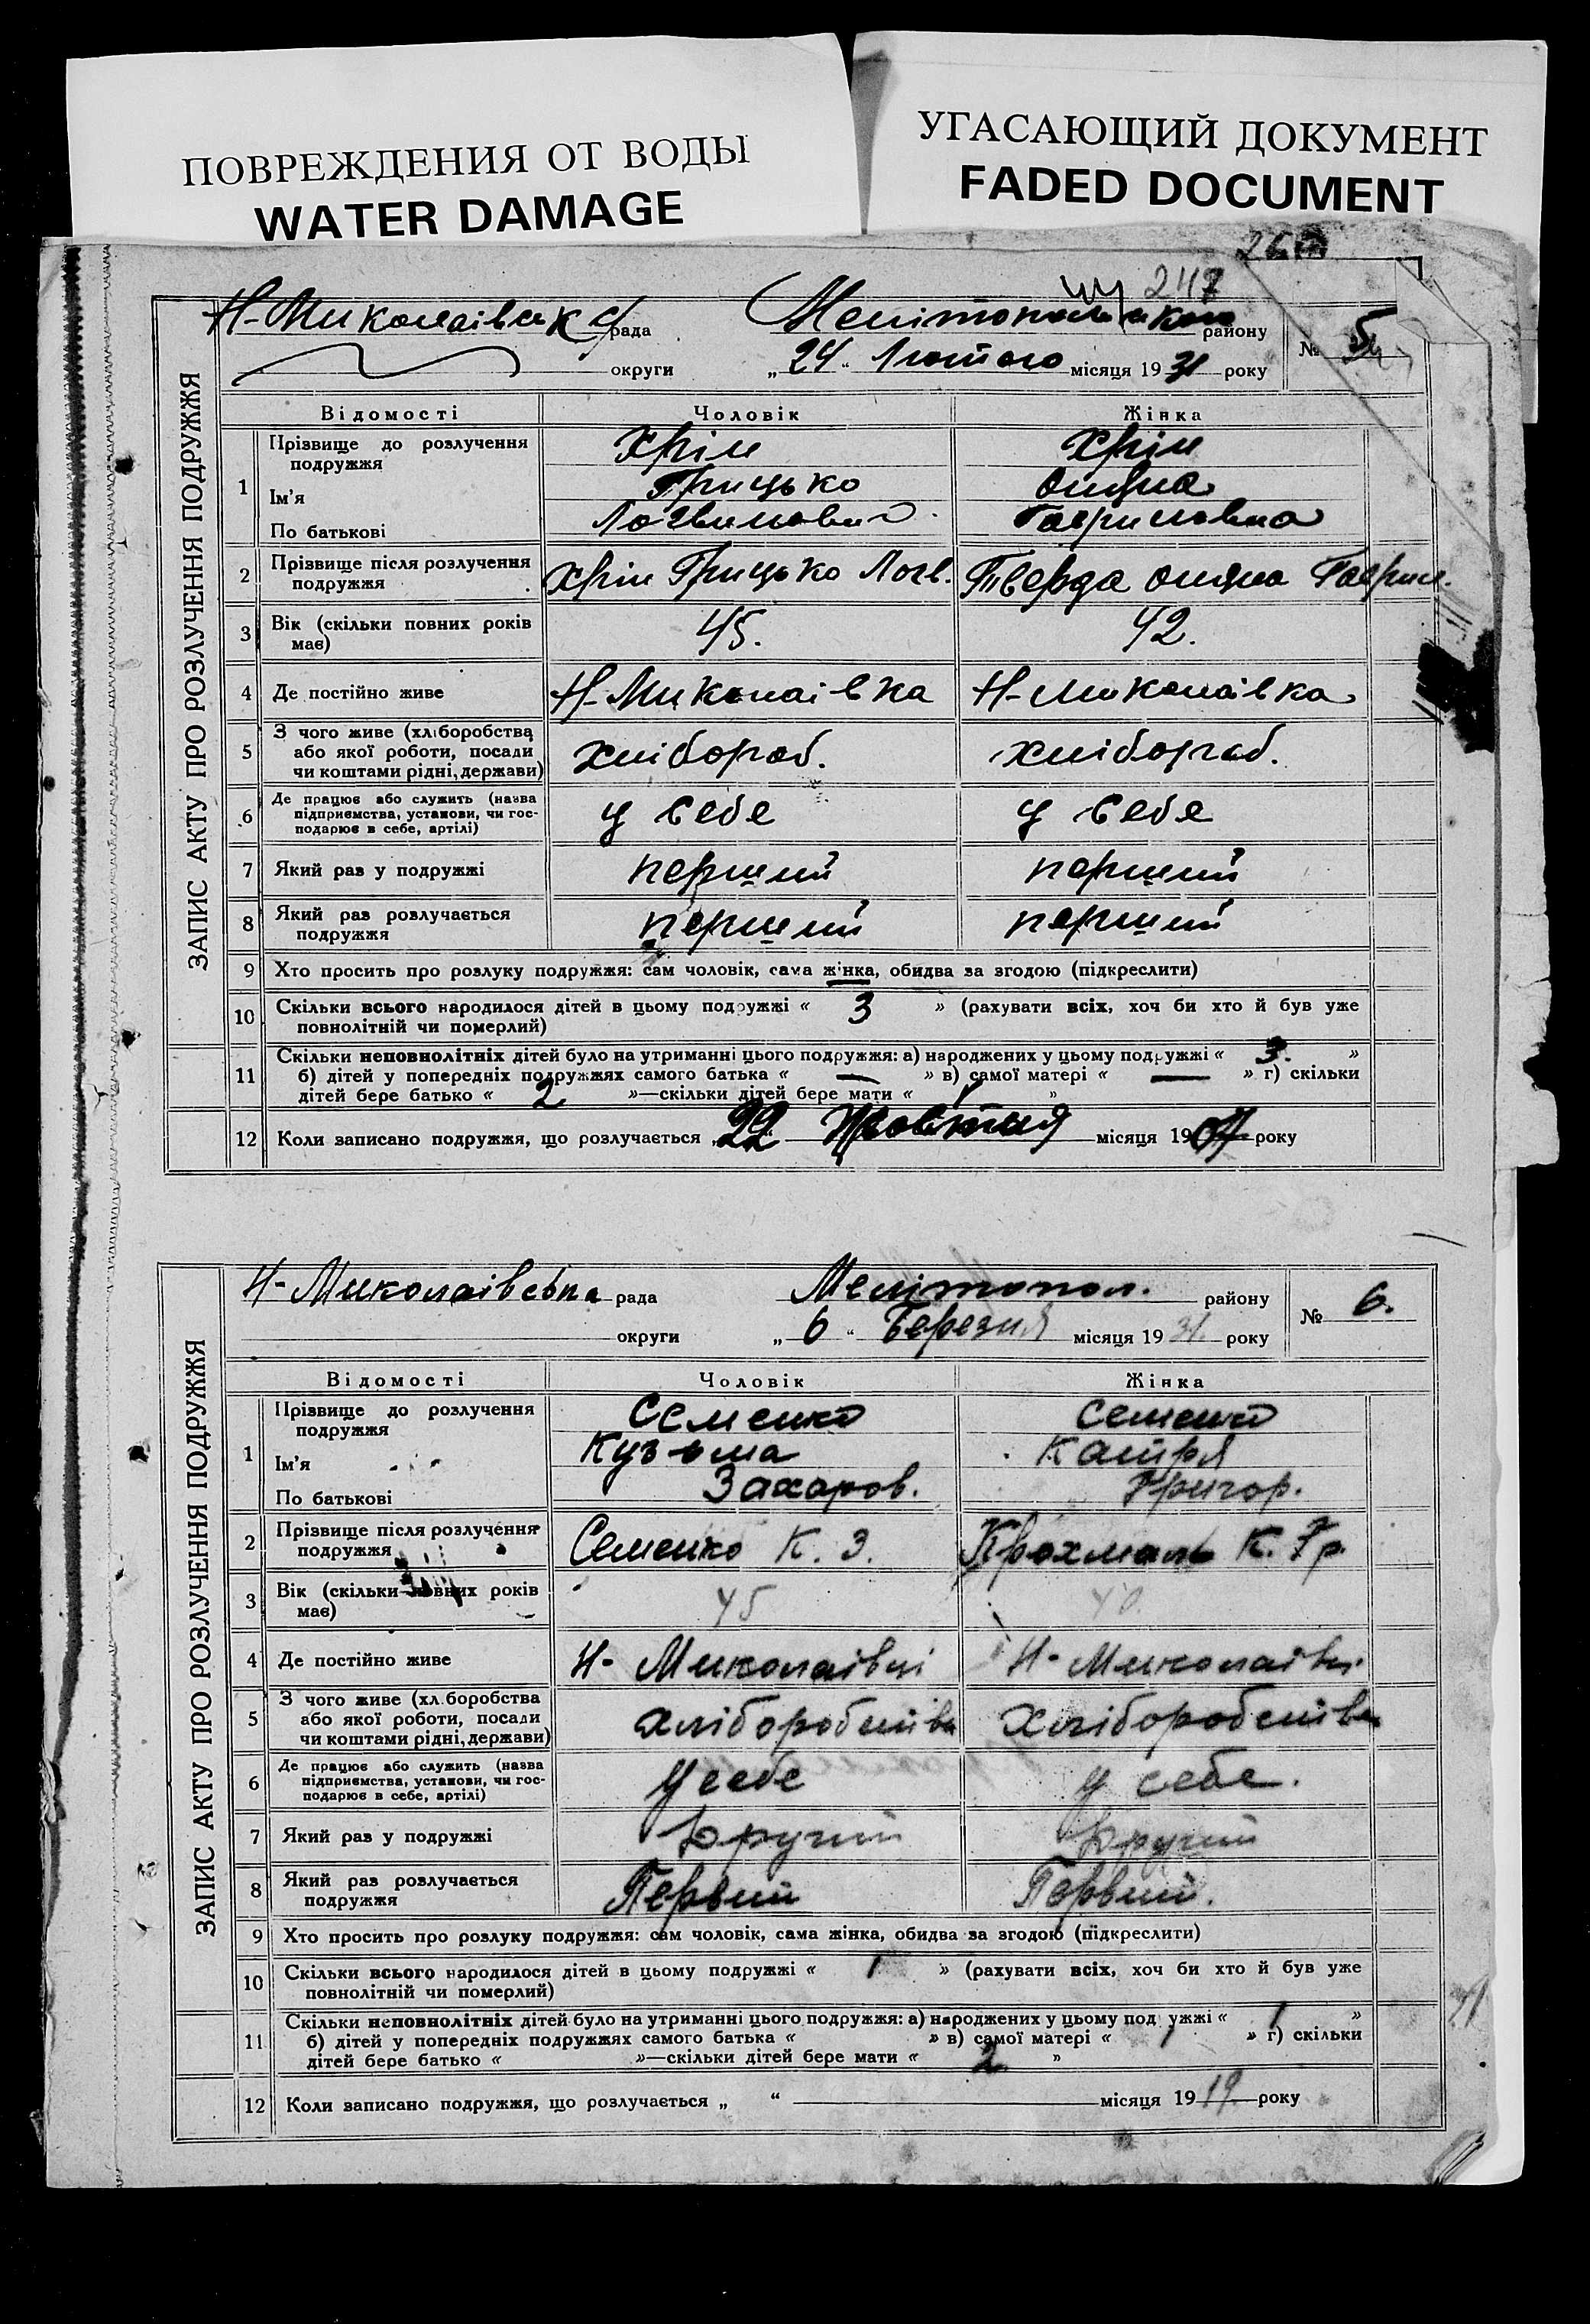 ПОВРЕЖДЕНИЯ ОТ ВОДЫ
WATER DAMAGE
УГАСАЮЩИЙ ДОКУМЕНТ
FADED DOCUMENT
247
ЗАПИС АКТУ ПРО РОЗЛУЧЕННЯ ПОДРУЖЖЯ
Н-Миколаівська рада Мелітопольського району № 5
округи „ 24 “ Лютого місяця 19 31 року
Відомості Чоловік Жінка
1 Прізвище до розлучення подружжя Хрін Хрін
Ім’я Грицько
По батькові Логвинович Гавриловна
2 Прізвище після розлучення подружжя Хрін Грицько Логв. Тверда Гаврил.
3 Вік (скільки повних років має) 45. 42.
4 Де постійно живе Н-Миколаівка Н-Миколаівка
5 З чого живе (хліборобства або якої роботи, посади чи коштами рідні, держави) хлібороб. хлібороб.
6 Де працює або служить (назва підприємства, установи, чи господарює в себе, артілі) у себе у себе
7 Який раз у подружжі перший перший
8 Який раз розлучається подружжя перший перший
9 Хто просить про розлуку подружжя: сам чоловік, сама жінка, обидва за згодою (підкреслити)
10 Скільки всього народилося дітей в цьому подружжі « 3 » (рахувати всіх, хоч би хто й був уже
повнолітній чи померлий)
11 Скільки неповнолітніх дітей було на утриманні цього подружжя: а) народжених у цьому подружжі « 3. »
б) дітей у попередніх подружжях самого батька « — » в) самої матері « — » г) скільки
дітей бере батько « 2 »—скільки дітей бере мати « »
12 Коли записано подружжя, що розлучається „ 22 Жовтня місяця 19 07 року
ЗАПИС АКТУ ПРО РОЗЛУЧЕННЯ ПОДРУЖЖЯ
Н-Миколаівська рада Мелітопол. району № 6.
округи „ 6 “ Березня місяця 19 31. року
Відомості Чоловік Жінка
1 Прізвище до розлучення подружжя Семенко Семенко
Ім’я Кузьма Катря
По батькові Захаров. Григор.
2 Прізвище після розлучення подружжя Семенко К. З. Крохмаль К. Гр.
3 Вік (скільки повних років має) 45 40.
4 Де постійно живе Н- Миколаівці Н- Миколаівц.
5 З чого живе (хліборобства або якої роботи, посади чи коштами рідні, держави)
6 Де працює або служить (назва підприємства, установи, чи господарює в себе, артілі) у себе у себе.
7 Який раз у подружжі Другий Другий
8 Який раз розлучається подружжя Первий Первий.
9 Хто просить про розлуку подружжя: сам чоловік, сама жінка, обидва за згодою (підкреслити)
10 Скільки всього народилося дітей в цьому подружжі « 1 » (рахувати всіх, хоч би хто й був уже
повнолітній чи померлий)
11 Скільки неповнолітніх дітей було на утриманні цього подружжя: а) народжених у цьому подружжі « 1 »
б) дітей у попередніх подружжях самого батька « » в) самої матері « 1 » г) скільки
дітей бере батько « »—скільки дітей бере мати « 2 »
12 Коли записано подружжя, що розлучається „ “ місяця 19 19. року